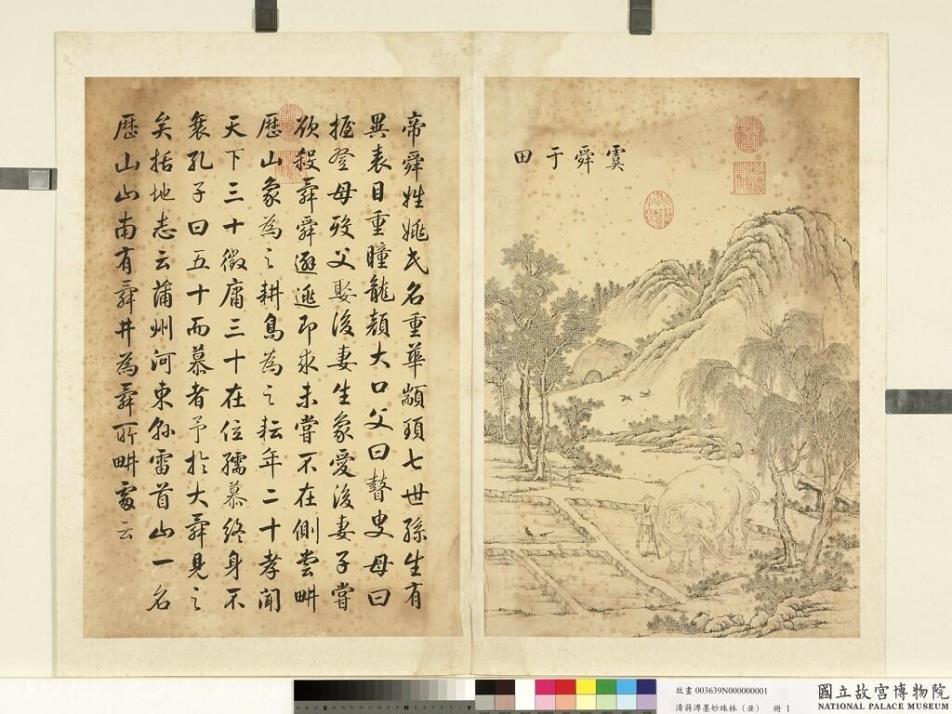 虞舜于田
帝舜姓姚氏名重華顓頊七世孫生有
異表目重瞳龍顏大口父曰瞽叟母曰
握登母歿父娶後妻生象愛後妻子嘗
欲殺舜舜遜逃即求未嘗不在側嘗畊
歷山象為之耕鳥為之耘年二十孝聞
天下三十徵庸三十在位孺慕終身不
衰孔子曰五十而慕者予於大舜見之
矣括地志云蒲州河東縣雷首山一名
歷山山南有舜井為舜所畊處云
故畫 003639N000000001
清蔣溥墨妙珠林（丑） 冊 1
國立故宮博物院
NATIONAL PALACE MUSEUM